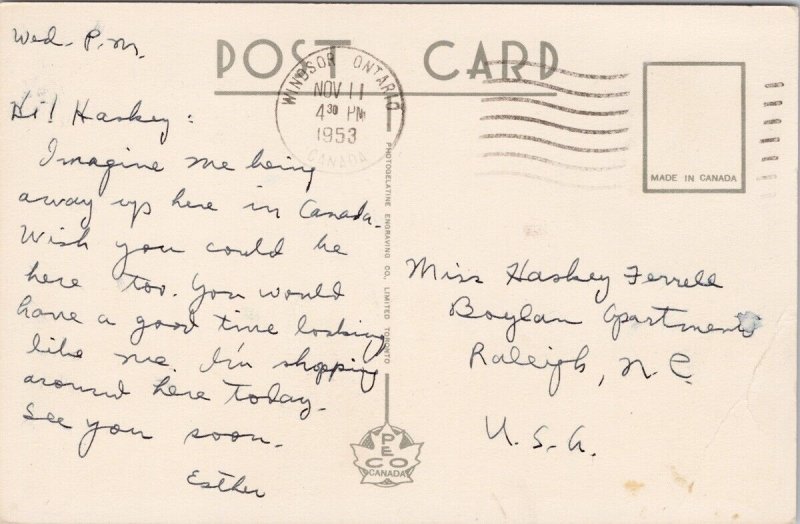 Wed - P.M.
POST CARD
WINDSOR ONTARIO
NOV 11
4 30 PM
1953
CANADA
MADE IN CANADA
Hi! Haskey:
Imagine me being
away up here in Canada.
Wish you could be
here too. You would
have a good time looking
like me. I'm shopping
around here today.
See you soon.
Esther
PHOTOGELATINE ENGRAVING CO. LIMITED TORONTO
PECO
CANADA
Miss Haskey Ferrell
Boylan Apartments
Raleigh, N.C.
U.S.A.